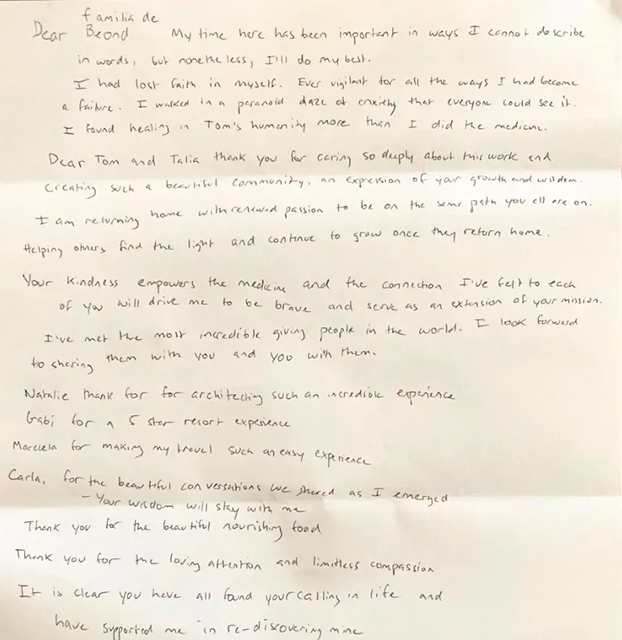 familia de
Dear Beond My time here has been important in ways I cannot describe
in words, but nonetheless, I'll do my best.
I had lost faith in myself. Ever vigilant for all the ways I had become
a failure. I walked in a paranoid daze of anxiety that everyone could see it.
I found healing in Tom's humanity more than I did the medicine.
Dear Tom and Talia thank you for caring so deeply about this work and
creating such a beautiful community, an expression of your growth and wisdom.
I am returning home with renewed passion to be on the same path you all are on.
Helping others find the light and continue to grow once they return home.
Your kindness empowers the medicine and the connection I've felt to each
of you will drive me to be brave and serve as an extension of your mission.
I've met the most incredible giving people in the world. I look forward
to sharing them with you and you with them.
Natalie thank for for architecting such an incredible experience
Gabi for a 5 star resort experience
Marciela for making my travel such an easy experience
Carla, for the beautiful conversations we shared as I emerged
- Your wisdom will stay with me
Thank you for the beautiful nourishing food
Thank you for the loving attention and limitless compassion
It is clear you have all found your calling in life and
have supported me in re-discovering mine